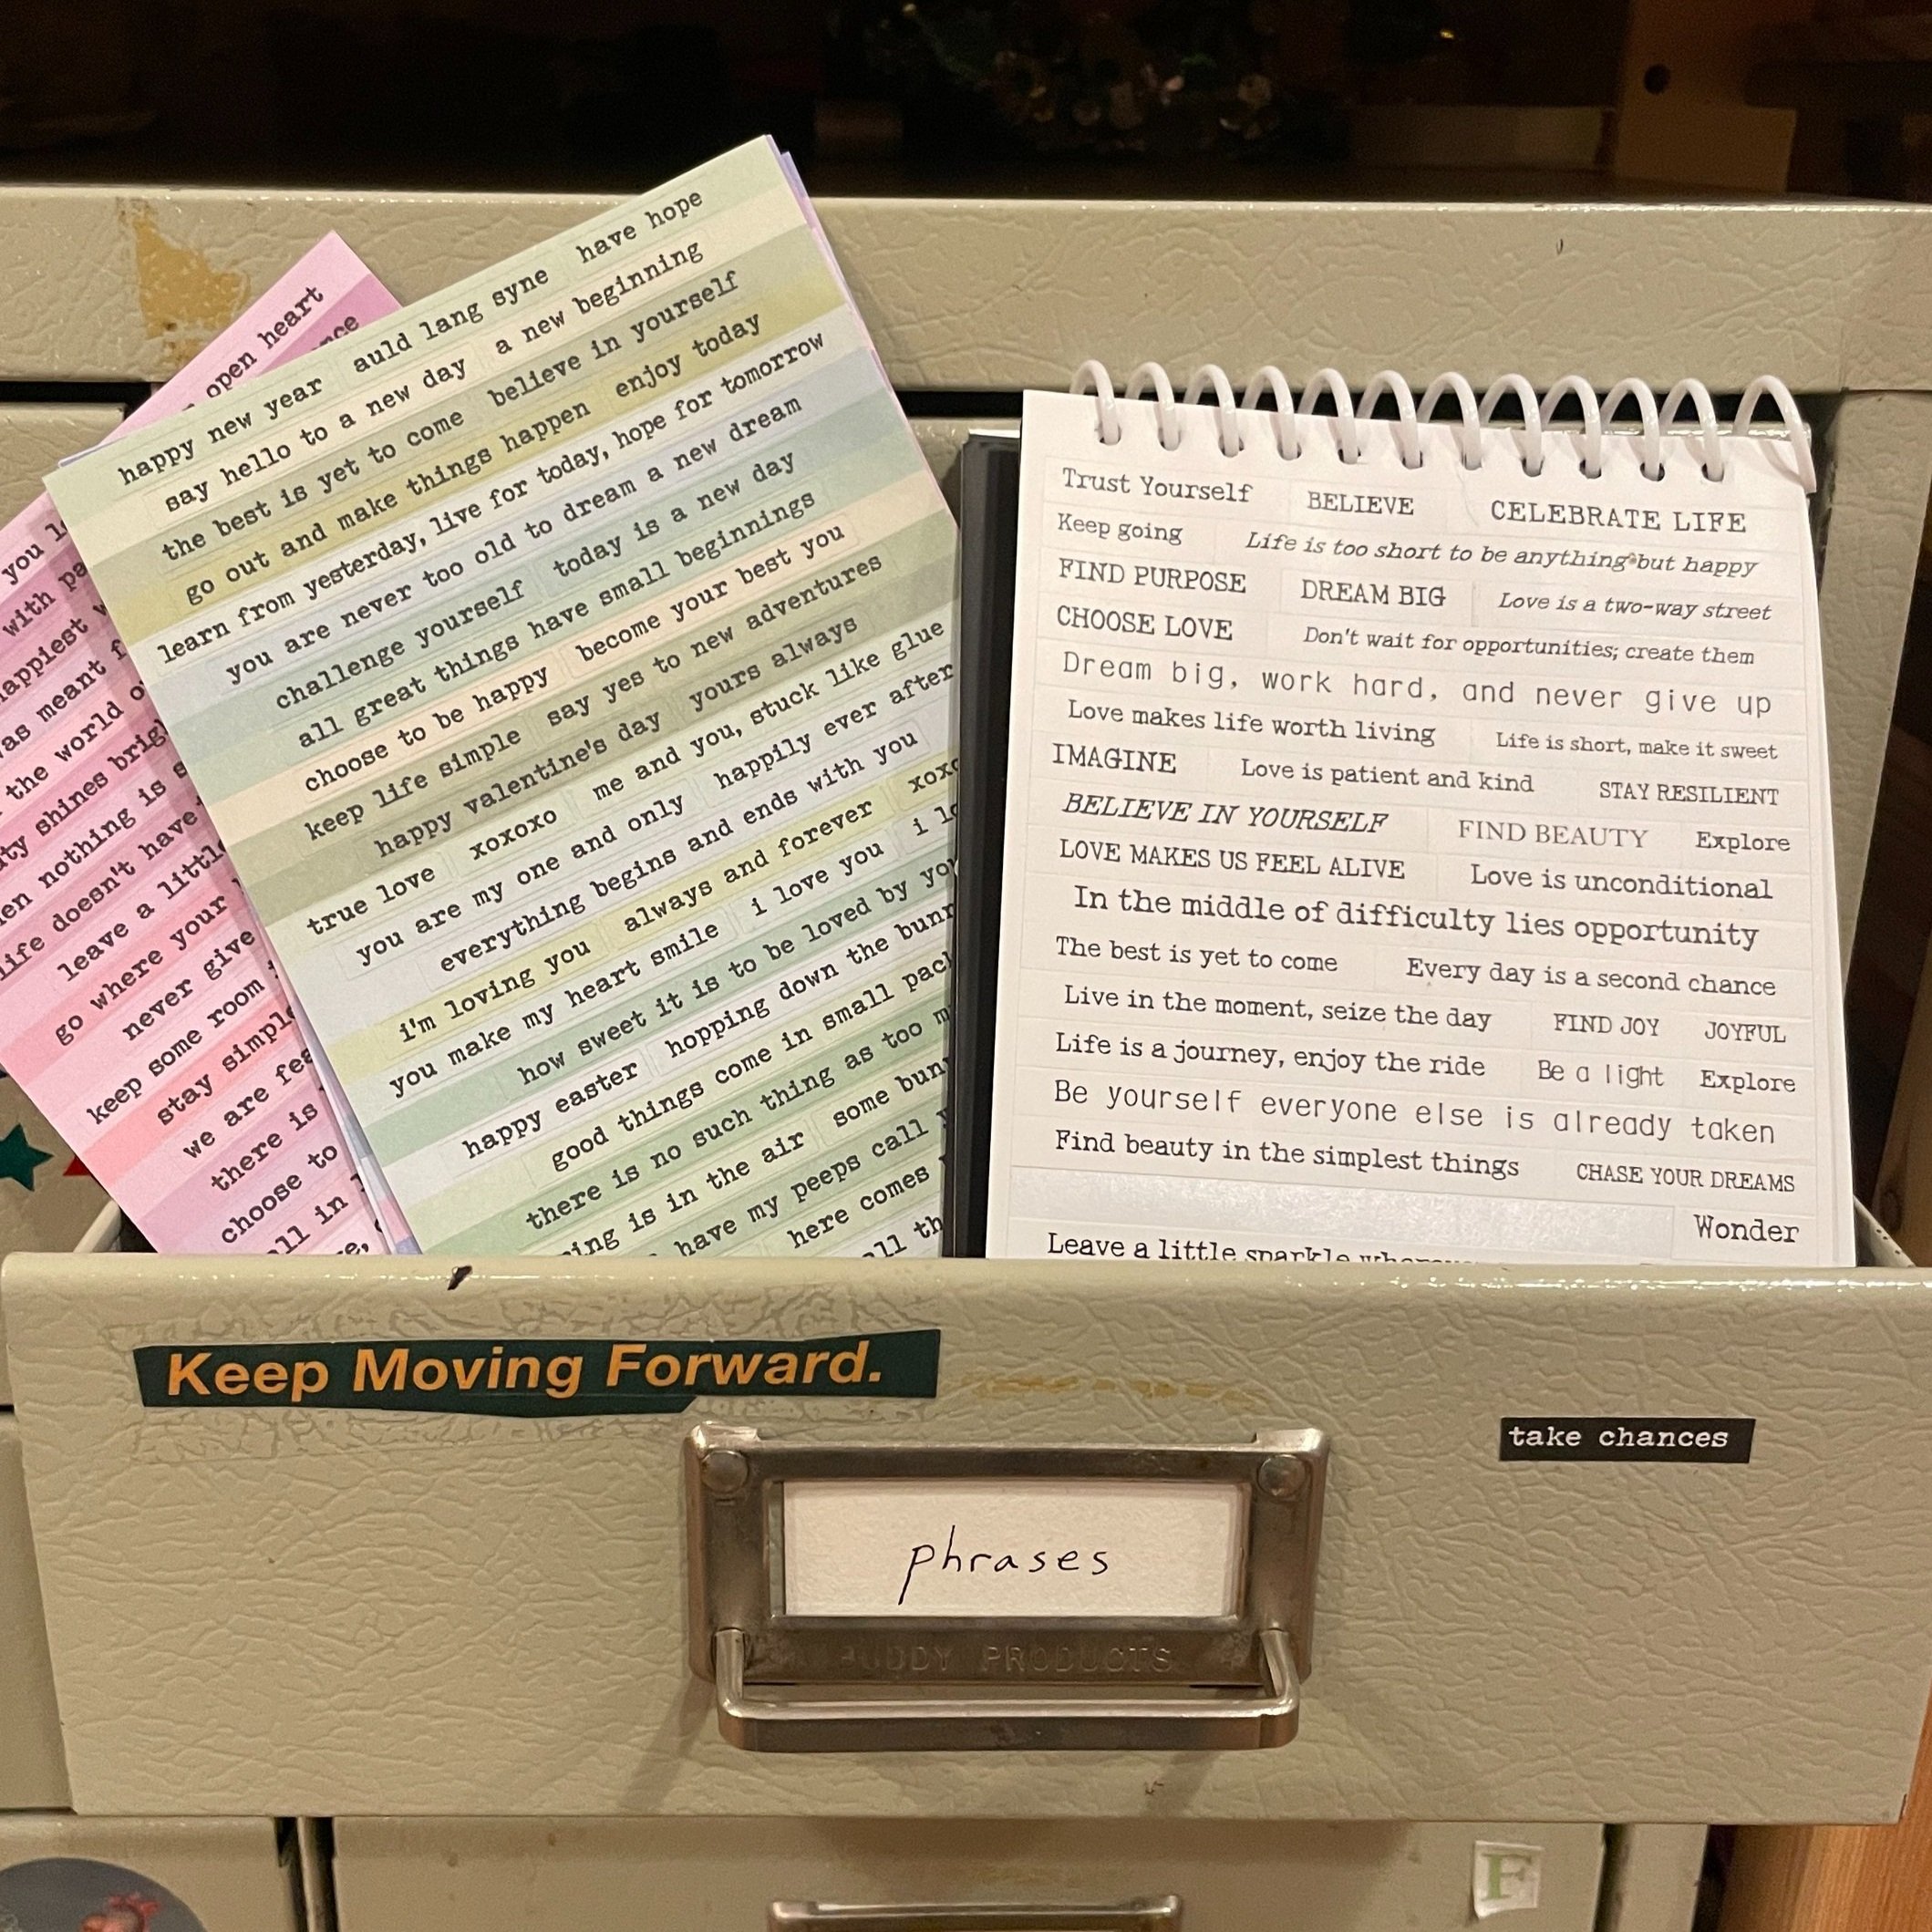 open heart
you
with
happiest
was meant
the world
shines
nothing is
life doesn't have
leave a little
go where your
never give
keep some room
stay simple
we are
there is
choose to
in
happy new year auld lang syne have hope
say hello to a new day a new beginning
the best is yet to come believe in yourself
go out and make things happen enjoy today
learn from yesterday, live for today, hope for tomorrow
you are never too old to dream a new dream
challenge yourself today is a new day
all great things have small beginnings
choose to be happy become your best you
keep life simple say yes to new adventures
happy valentine's day yours always
true love xoxoxo me and you, stuck like glue
you are my one and only happily ever after
everything begins and ends with you
i'm loving you always and forever
you make my heart smile i love you i
how sweet it is to be loved by you
happy easter hopping down the
good things come in small
there is no such thing as too
is in the air some
have my peeps call
here comes
Trust Yourself BELIEVE CELEBRATE LIFE
Keep going Life is too short to be anything but happy
FIND PURPOSE DREAM BIG Love is a two-way street
CHOOSE LOVE Don't wait for opportunities; create them
Dream big, work hard, and never give up
Love makes life worth living Life is short, make it sweet
IMAGINE Love is patient and kind STAY RESILIENT
BELIEVE IN YOURSELF FIND BEAUTY Explore
LOVE MAKES US FEEL ALIVE Love is unconditional
In the middle of difficulty lies opportunity
The best is yet to come Every day is a second chance
Live in the moment, seize the day FIND JOY JOYFUL
Life is a journey, enjoy the ride Be a light Explore
Be yourself everyone else is already taken
Find beauty in the simplest things CHASE YOUR DREAMS
Wonder
Leave a little sparkle
Keep Moving Forward.
take chances
phrases
BUDDY PRODUCTS
F